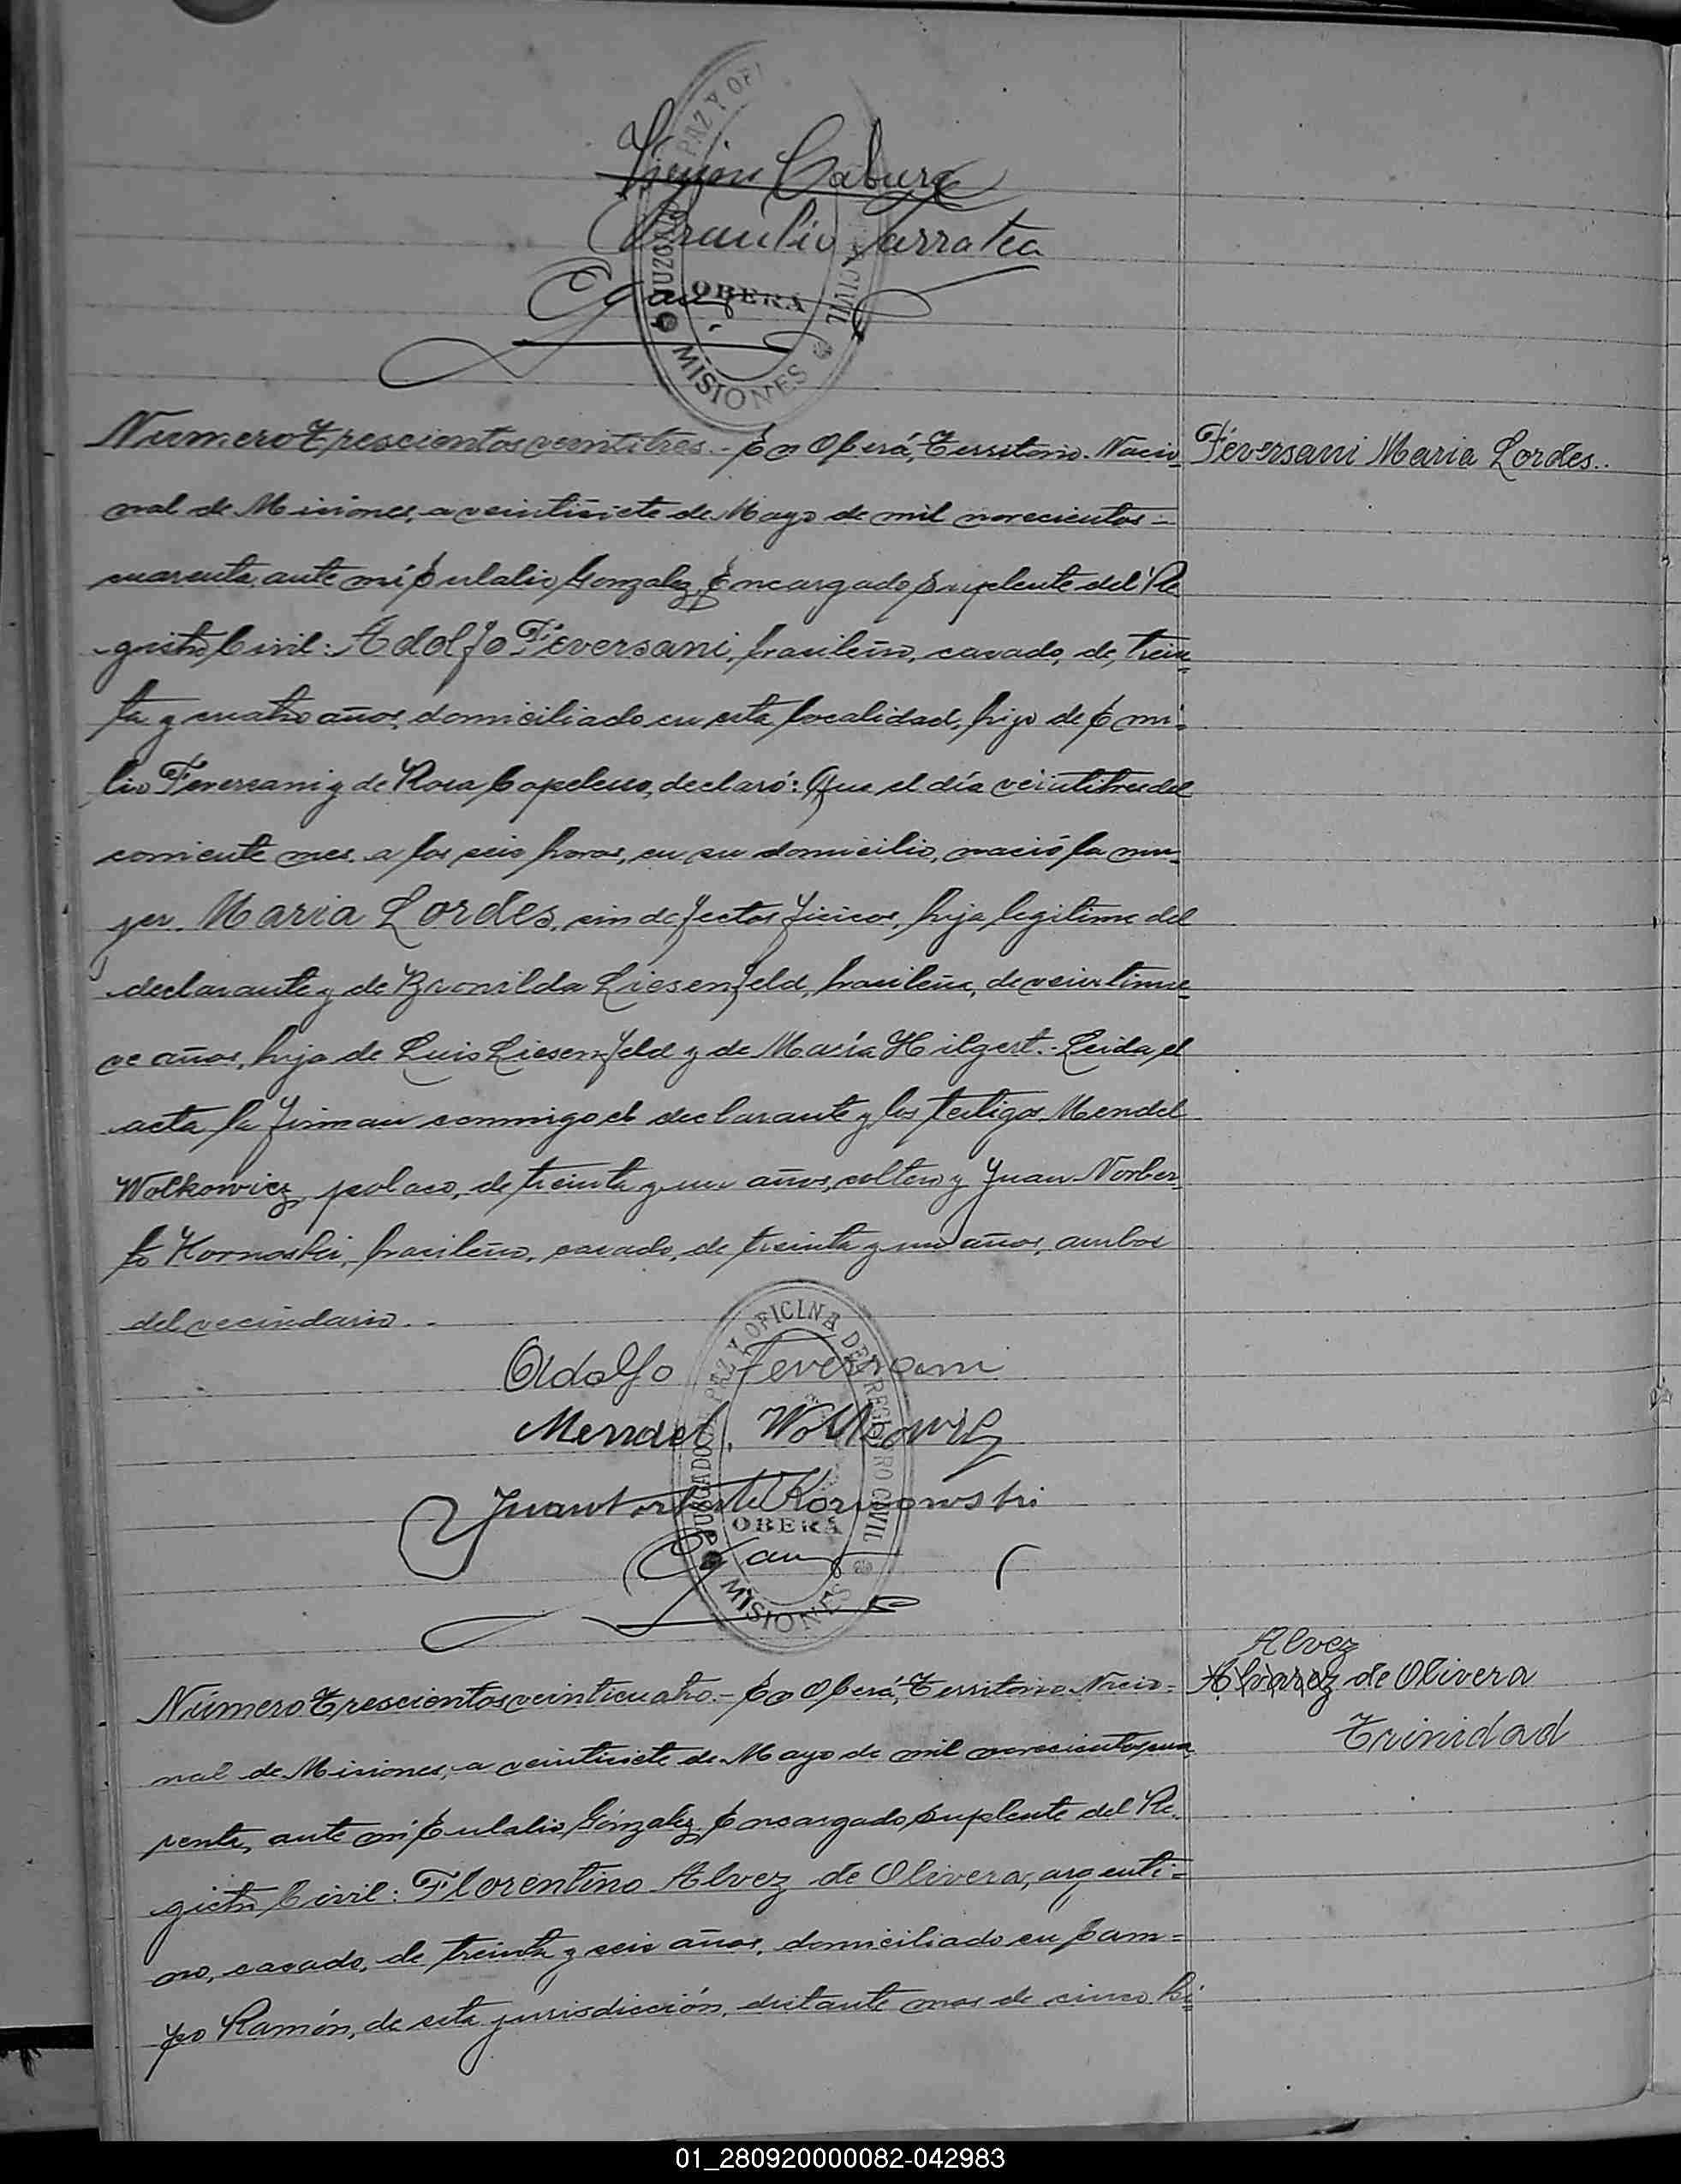 Simón Cabura
Braulio Sarratea
JUZGADO PAZ Y OFI CIVIL
OBERÁ
MISIONES
Número Trescientos veintitres.- En Oberá, Territorio Nacio- Feversani Maria Lordes..
nal de Misiones, a veintisiete de Mayo de mil novecientos-
cuarenta, ante mí Eulalio Gonzalez, Encargado Suplente del Re
gistro Civil: Adolfo Feversani, brasileño, casado, de trein-
ta y cuatro años, domiciliado en esta localidad, hijo de Emi-
lio Feversani y de Rosa Capelesso, declaró: Que el día veintitres del
corriente mes a las seis horas, en su domicilio, nació la mu-
jer Maria Lordes, sin defectos fisicos, hija legitima del
declarante y de Bronilda Liesenfeld, brasileña, de veintinue-
ve años, hija de Luis Liesenfeld y de María Hilgert.- Leida el
acta la firman conmigo el declarante y los testigos Mendel
Wolkowicz, polaco, de treinta y un años, soltero y Juan Norber-
to Kornoski, brasileño, casado, de treinta y un años, ambos
del vecindario..
Adolfo Feversani
Mendel Wolkowicz
Juan Norberto Kornowski
JUZGADO DE PAZ Y OFICINA DEL REGISTRO CIVIL
OBERÁ
MISIONES
Alvez
Número Trescientos veinticuatro.- En Oberá, Territorio Nacio- Alvarez de Olivera
Trinidad
nal de Misiones, a veintisiete de Mayo de mil novecientos cua
renta, ante mí Eulalio Gónzalez, Encargado Suplente del Re-
gistro Civil: Florentino Alvez de Olivera, argenti-
no, casado, de treinta y seis años, domiciliado en Cam-
po Ramón, de esta jurisdicción, distante mas de cinco ki-
01_280920000082-042983